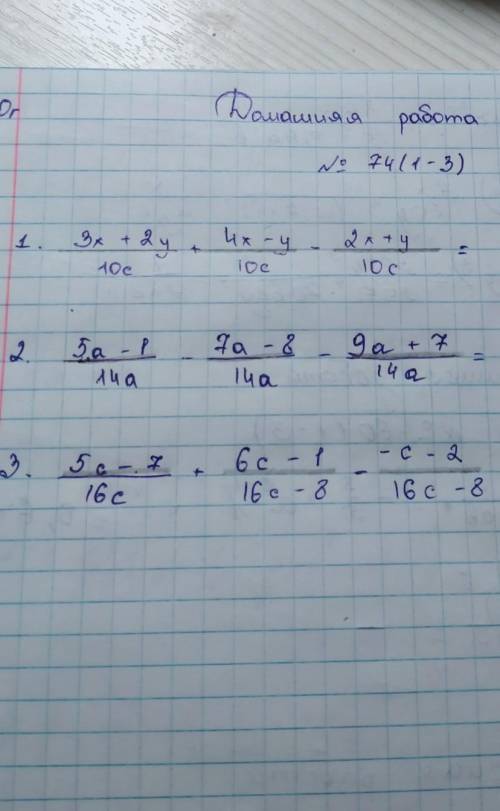 Домашняя работа
№ 74(1-3)
1. (3x + 2y)/10c + (4x - y)/10c - (2x + y)/10c =
2. (5a - 1)/14a - (7a - 8)/14a - (9a + 7)/14a =
3. (5c - 7)/16c + (6c - 1)/(16c - 8) - (-c - 2)/(16c - 8)